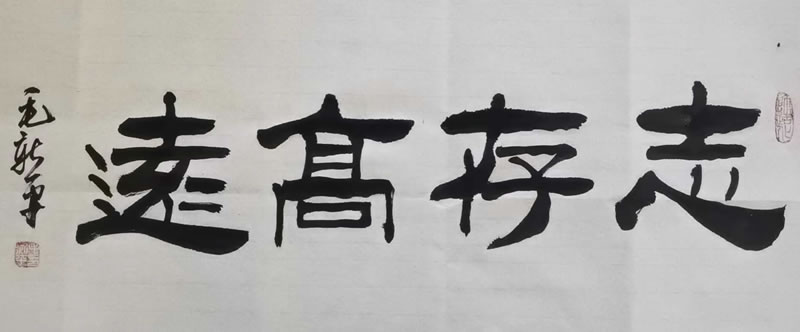 志存高遠
毛新平